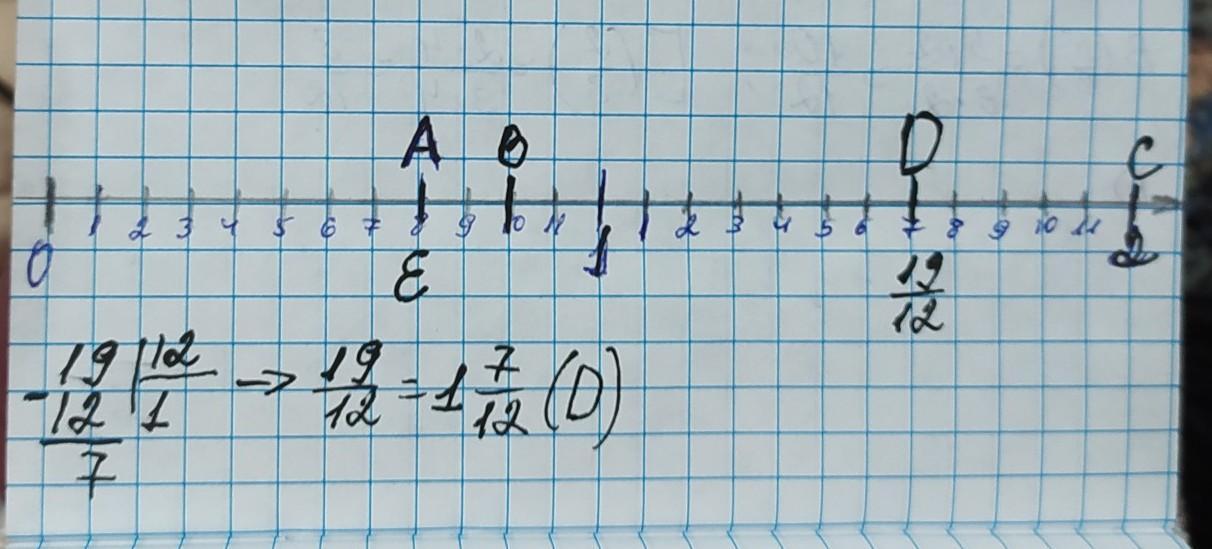 A B D C
1 2 3 4 5 6 7 8 9 10 11 1 2 3 4 5 6 7 8 9 10 11
0 E 1 2
19/12
19 | 12 → 19/12 = 1 7/12 (D)
- 12 1
7